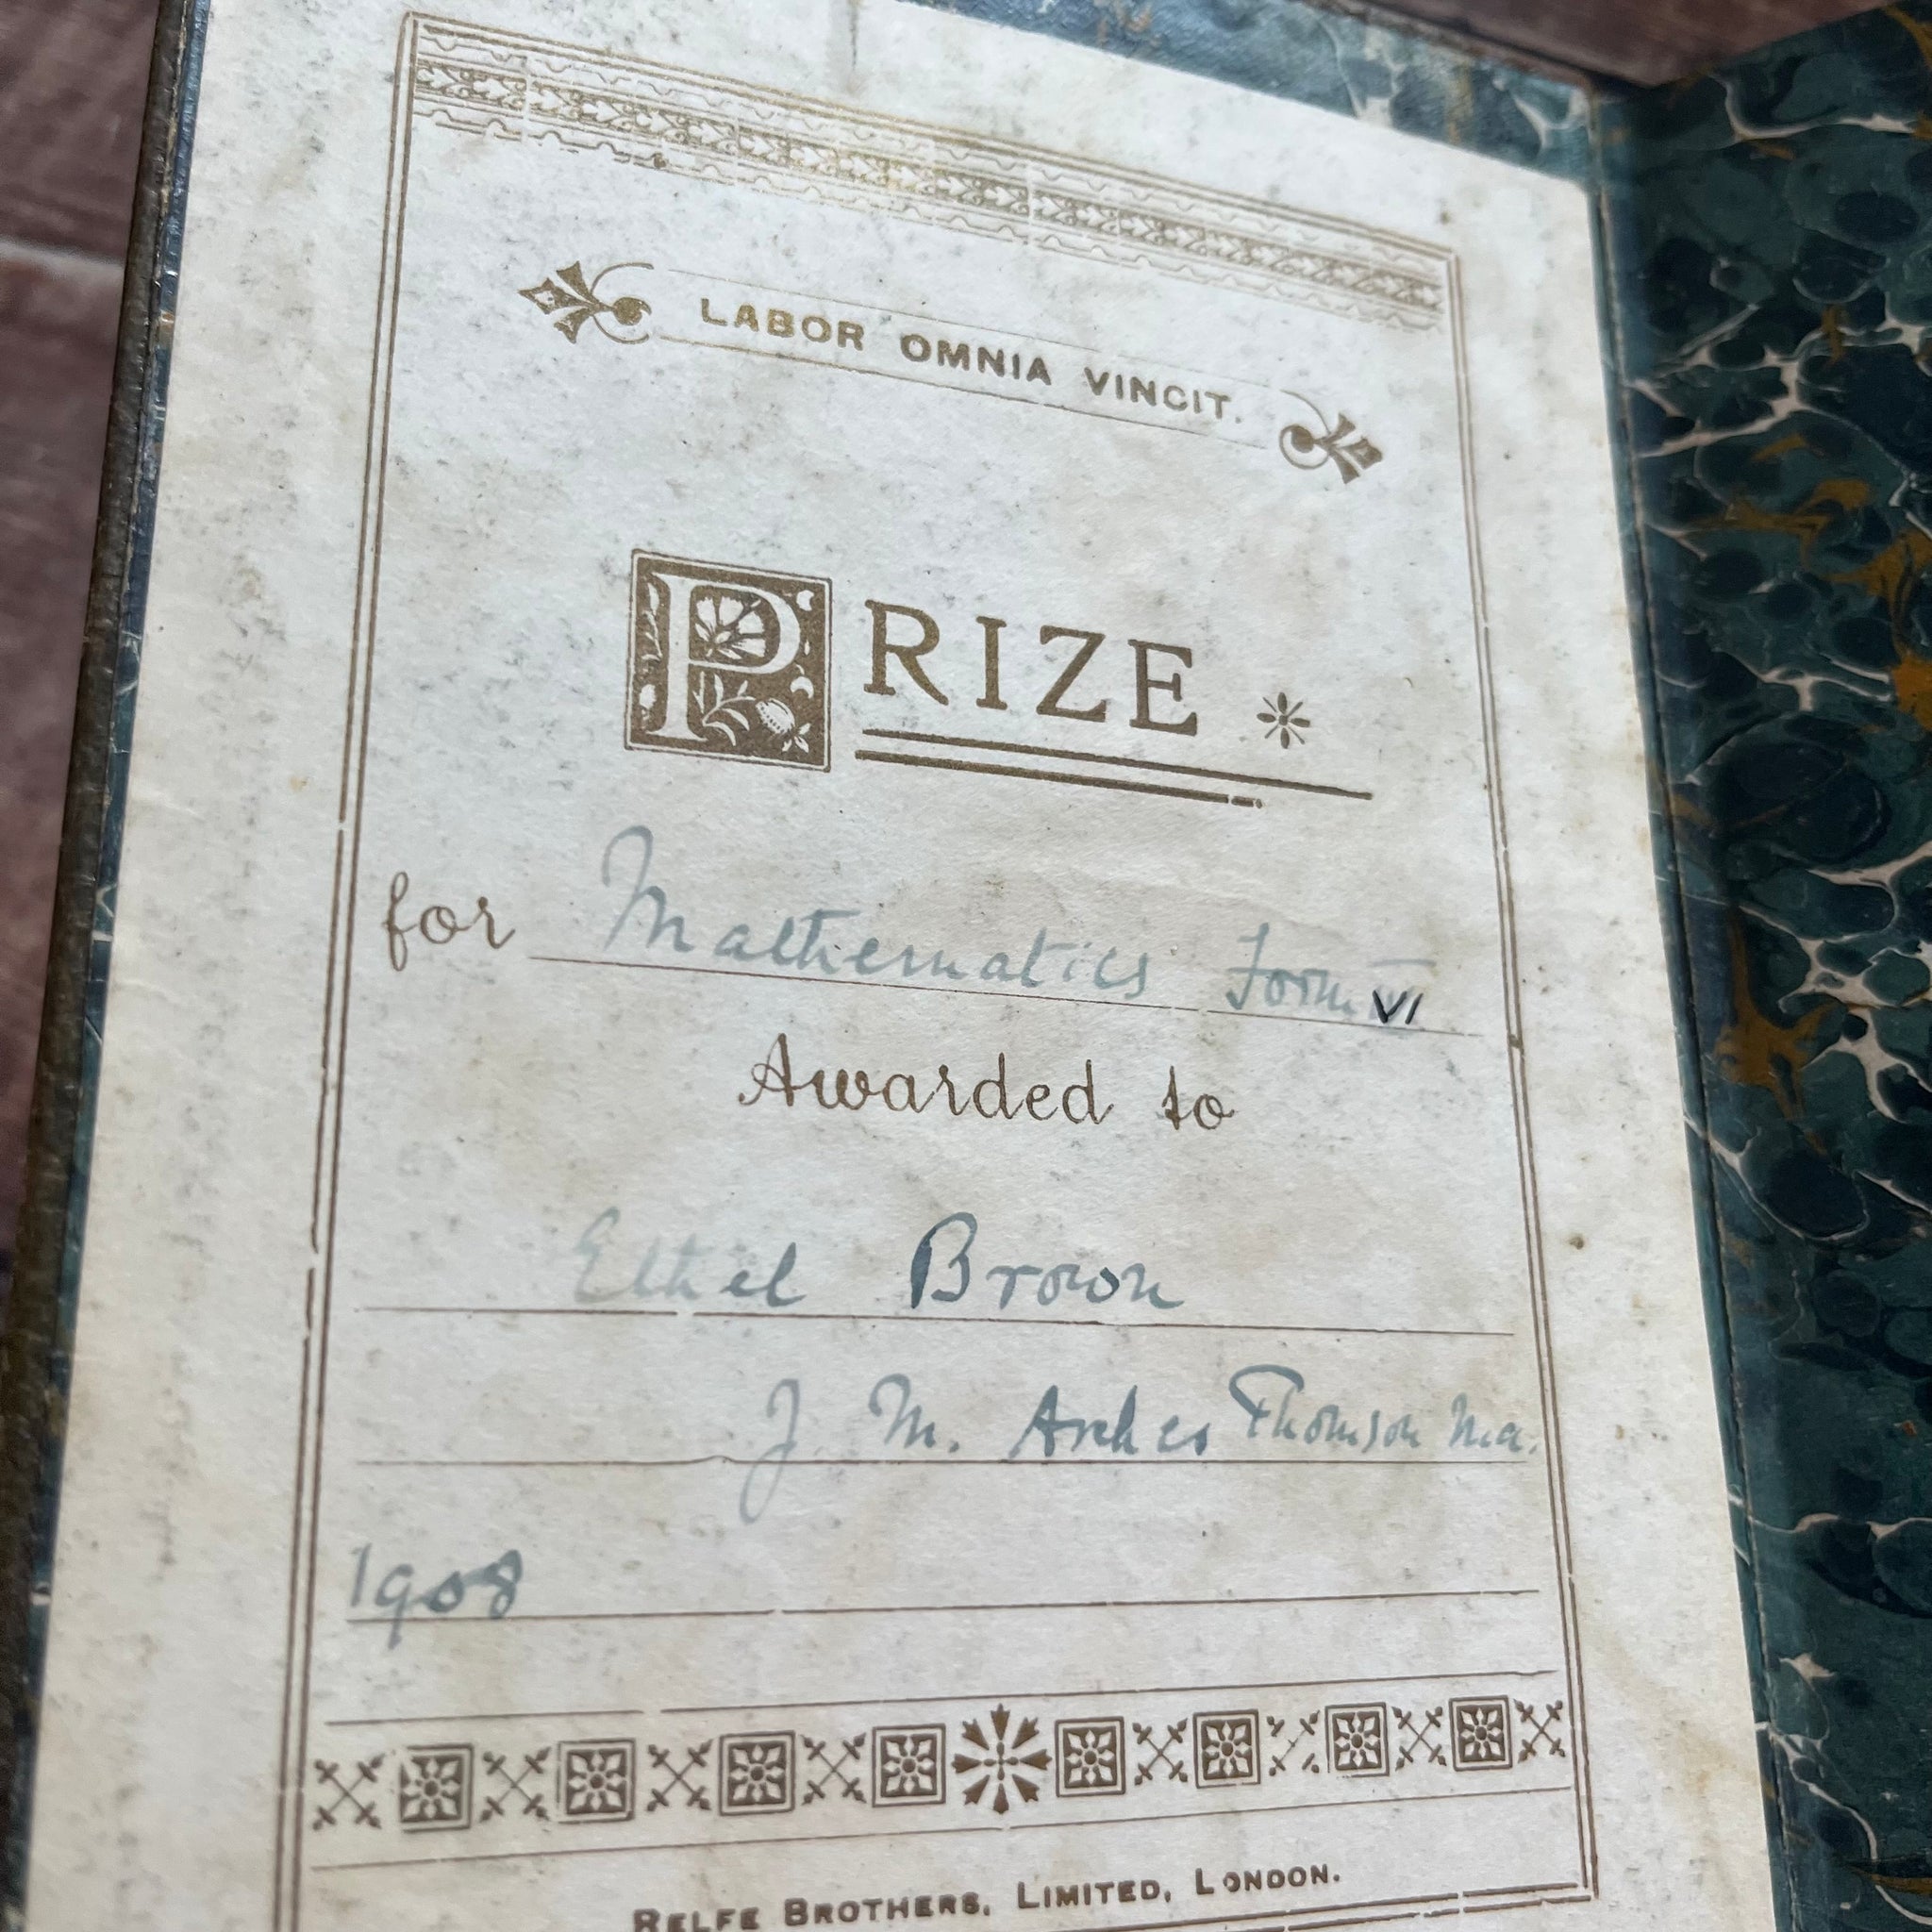 LABOR OMNIA VINCIT.
PRIZE
for Mathematics Form VI
Awarded to
Ethel Brown
J. M. Archer Thomson M.a.
1908
RELFE BROTHERS, LIMITED, LONDON.